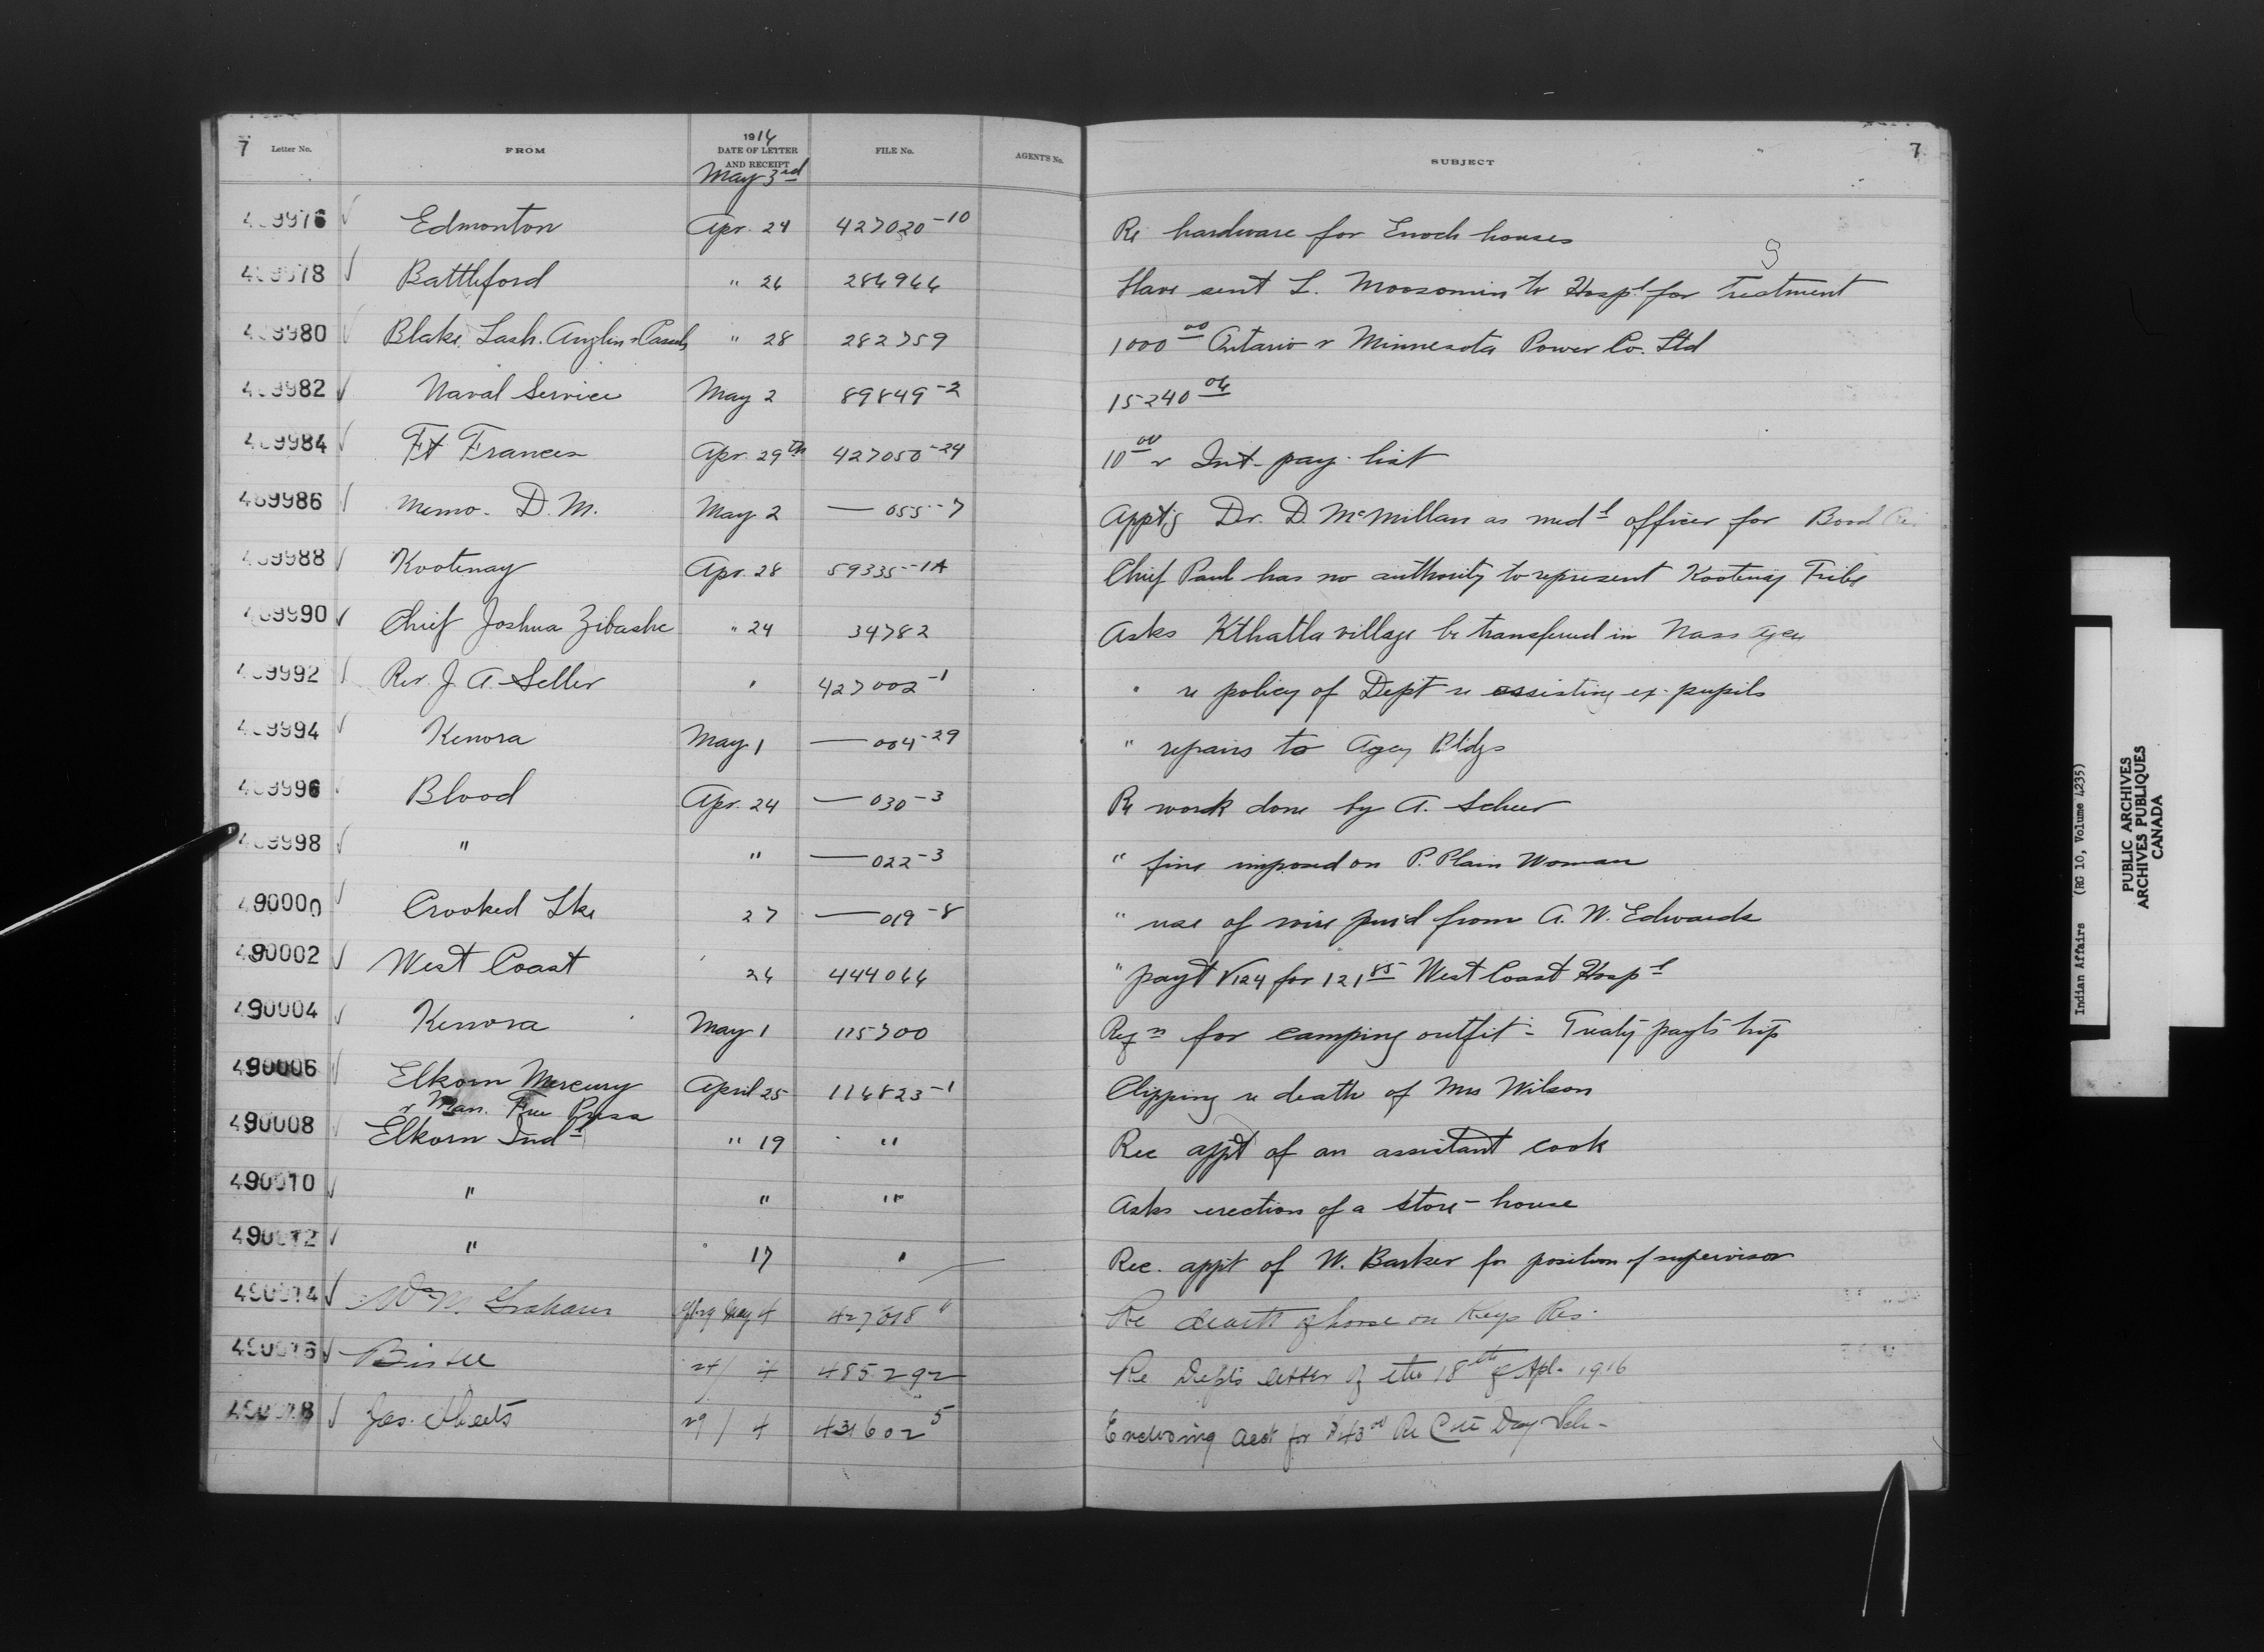 7 Letter No. FROM 1916 DATE OF LETTER AND RECEIPT FILE No. AGENT'S No. SUBJECT 7
May 3rd
489976 Edmonton Apr. 24 427020-10 Re hardware for Enoch houses
489978 Battleford " 26 Have sent L. Moosomin to Hospl for Treatment
489980 Blake, Lash, Anglin & Cassels " 28 282759 1000 00 Ontario & Minnesota Power Co. Ltd
489982 Naval Service May 2 89849-2 15240 06
489984 Ft Frances Apr. 29th 427050-24 10 00 & Int. pay-list
489986 Memo. D. M. May 2 — 055-7 Appt'g Dr. D. McMillan as medl officer for
489988 Kootenay Apr. 28 59335-1A Chief Paul has no authority to represent Kootenay Tribe
489990 Chief Joshua Zibashe " 24 34782 Asks Kthatla village be transferred in Nass Agcy
489992 Rev. J. A. Seller " 427002-1 " re policy of Dept re assisting ex-pupils
489994 Kenora May 1 — 004-29 " repairs to Agcy Bldgs
489996 Blood Apr. 24 — 030-3 Re work done by A. Scheer
489998 " " — 022-3 " fine imposed on P. Plain Woman
490000 Crooked Lke 27 — 019-8 " use of wire purd from A. W. Edwards
490002 West Coast 26 444066 " payt V124 for 121 85 West Coast Hospl
490004 Kenora May 1 115700 Reqn for camping outfit - Treaty payts trip
490006 Elkorn Mercury & Man. Free Press April 25 116823-1 Clipping re death of Mrs Wilson
490008 Elkorn Indl " 19 " Rec appt of an assistant cook
490010 " " " Asks erection of a store-house
490012 " " 17 " Rec. appt of W. Barker for position of supervisor
490014 Wm M. Graham Apl 29 May 4 427018 Re death of horse on Keys Res.
490016 Birtle 29/4 485292 Re Depts letter of the 18th of Apl. 1916
490018 Jas. 29/4 431602 5 Enclosing acct for $43 00 Re Day Sch-
Indian Affairs (RG 10, Volume 4235)
PUBLIC ARCHIVES
ARCHIVES PUBLIQUES
CANADA